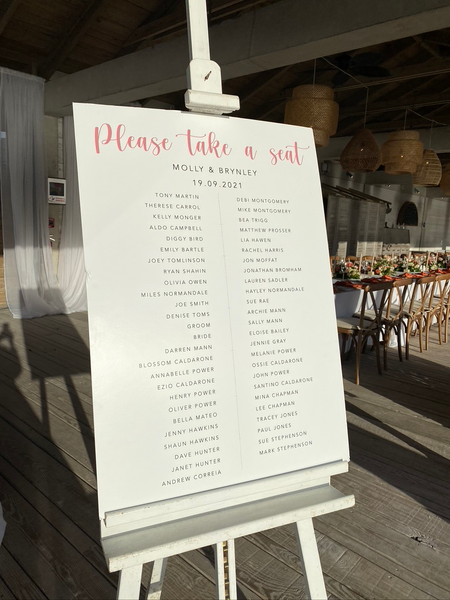 Please take a seat
MOLLY & BRYNLEY
19.09.2021
TONY MARTIN
THERESE CARROL
KELLY MONGER
ALDO CAMPBELL
DIGGY BIRD
EMILY BARTLE
JOEY TOMLINSON
RYAN SHAHIN
OLIVIA OWEN
MILES NORMANDALE
JOE SMITH
DENISE TOMS
GROOM
BRIDE
DARREN MANN
BLOSSOM CALDARONE
ANNABELLE POWER
EZIO CALDARONE
HENRY POWER
OLIVER POWER
BELLA MATEO
JENNY HAWKINS
SHAUN HAWKINS
DAVE HUNTER
JANET HUNTER
ANDREW CORREIA
DEBI MONTGOMERY
MIKE MONTGOMERY
BEA TRIGG
MATTHEW PROSSER
LIA HAWEN
RACHEL HARRIS
JON MOFFAT
JONATHAN BROMHAM
LAUREN SADLER
HAYLEY NORMANDALE
SUE RAE
ARCHIE MANN
SALLY MANN
ELOISE BAILEY
JENNIE GRAY
MELANIE POWER
OSSIE CALDARONE
JOHN POWER
SANTINO CALDARONE
MINA CHAPMAN
LEE CHAPMAN
TRACEY JONES
PAUL JONES
SUE STEPHENSON
MARK STEPHENSON